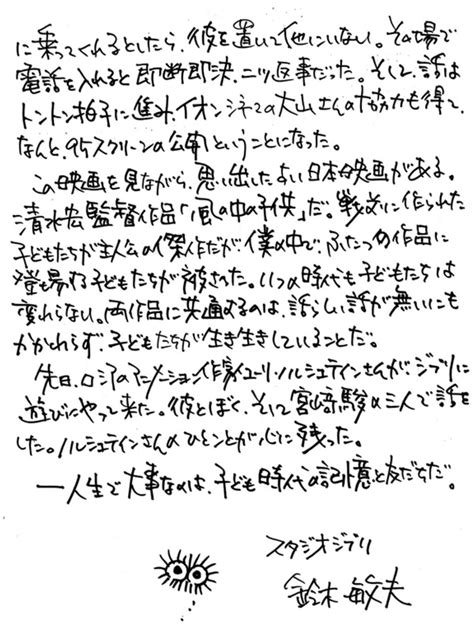 に乗ってくれるとしたら、彼を置いて他にいない。その場で
電話を入れると即断即決、二ツ返事だった。そして、話は
トントン拍子に進み、イオンシネマの大山さんの協力も得て、
なんと、95スクリーンの公開ということになった。
この映画を見ながら、思い出したよい日本映画がある。
清水宏監督作品「風の中の子供」だ。戦前に作られた
子どもたちが主人公の傑作だが、僕の中で、ふたつの作品に
登場する子どもたちが被さった。いつの時代も子どもたちは
変わらない。両作品に共通するのは、話らしい話が無いにも
かかわらず、子どもたちが生き生きしていることだ。
先日、ロシアのアニメーション作家ユーリ・ノルシュテインさんがジブリに
遊びにやって来た。彼とぼく、そして宮﨑駿の三人で話を
した。ノルシュテインさんのひとことが心に残った。
一人生で大事なのは、子ども時代の記憶と友だちだ。
スタジオジブリ
鈴木敏夫